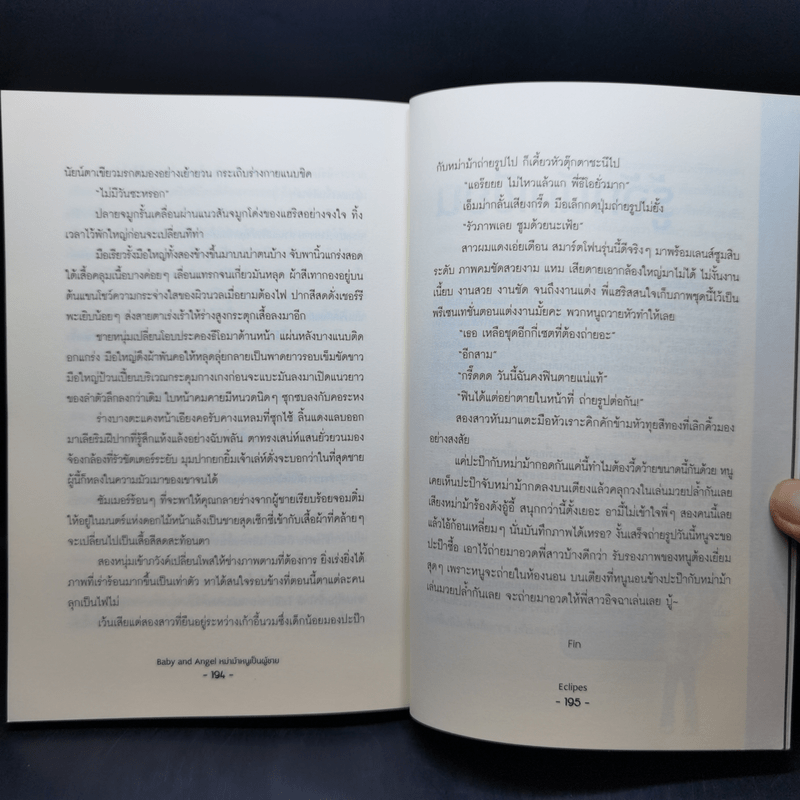 นัยน์ตาเขียวมรกตมองอย่างเย้ายวน กระเถิบร่างกายแนบชิด
“ไม่มีวันซะหรอก”
ปลายจมูกรั้นเคลื่อนผ่านแนวสันจมูกโด่งของแฮริสอย่างจงใจ ทิ้ง
เวลาไว้พักใหญ่ก่อนจะเปลี่ยนทีท่า
มือเรียวรั้งมือใหญ่ทั้งสองข้างขึ้นมาบนบ่าตนบ้าง จับพานิ้วแกร่งสอด
ใต้เสื้อคลุมเนื้อบางค่อยๆ เลื่อนแทรกจนเกี่ยวมันหลุด ผ้าสีเทากองอยู่บน
ต้นแขนโชว์ความกระจ่างใสของผิวนวลเมื่อยามต้องไฟ ปากสีสดดั่งเชอร์รี
พระเยิบน้อยๆ ส่งสายตาเร่งเร้าให้ร่างสูงกระตุกเสื้อลงมาอีก
ชายหนุ่มเปลี่ยนโอบประคองธีโอมาด้านหน้า แผ่นหลังบางแนบติด
อกแกร่ง มือใหญ่ดึงผ้าพันคอให้หลุดลุ่ยกลายเป็นพาดยาวรอบเข็มขัดขาว
มือใหญ่ป้วนเปี้ยนบริเวณกระดุมกางเกงก่อนจะแบะมันลงมาเปิดแนวยาว
ของลำตัวลึกลงกว่าเดิม ใบหน้าคมคายมีหนวดนิดๆ ซุกซบลงกับคอระหง
ร่างบางตะแคงหน้าเอียงคอรับคางแหลมที่ซุกไซ้ ลิ้นแดงแลบออก
มาเลียริมฝีปากที่รู้สึกแห้งแล้งอย่างฉับพลัน ตาทรงเสน่ห์แสนยั่วยวนมอง
จ้องกล้องที่รัวชัตเตอร์ระยับ มุมปากยกยิ้มเจ้าเล่ห์ดั่งจะบอกว่าในที่สุดชาย
ผู้นี้ก็หลงในความมัวเมาของเขาจนได้
ซัมเมอร์ร้อนๆ ที่จะพาให้คุณกลายร่างจากผู้ชายเรียบร้อยจอมติ๋ม
ให้อยู่ในมนตร์แห่งดอกไม้หน้าแล้งเป็นชายสุดเซ็กซี่เข้ากับเสื้อผ้าที่คล้ายๆ
จะเปลี่ยนไปเป็นเสื้อสีสดสะท้อนตา
สองหนุ่มเข้าภวังค์เปลี่ยนโพสให้ช่างภาพตามที่ต้องการ ยิ่งเร่งยิ่งได้
ภาพที่เร่าร้อนมากขึ้นเป็นเท่าตัว หาได้สนใจรอบข้างที่ตอนนี้ตาแต่ละคน
ลุกเป็นไฟไม่
เว้นเสียแต่สองสาวที่ยืนอยู่ระหว่างเก้าอี้นวมซึ่งเด็กน้อยมองปะป๊า
Baby and Angel หม่าม้าหนูเป็นผู้ชาย
- 194 -
กับหม่าม้าถ่ายรูปไป ก็เคี้ยวหัวตุ๊กตาชะนีไป
“แอร๊ยยย ไม่ไหวแล้วแก พี่ธีโอยั่วมาก”
เอ็มม่ากลั้นเสียงกรี๊ด มือเล็กกดปุ่มถ่ายรูปไม่ยั้ง
“รัวภาพเลย ซูมด้วยนะเฟ้ย”
สาวผมแดงเอ่ยเตือน สมาร์ตโฟนรุ่นนี้ดีจริงๆ มาพร้อมเลนส์ซูมสิบ
ระดับ ภาพคมชัดสวยงาม แหม เสียดายเอากล้องใหญ่มาไม่ได้ ไม่งั้นงาน
เนี้ยบ งานสวย งานชัด จนถึงงานแต่ง พี่แฮริสสนใจเก็บภาพชุดนี้ไว้เป็น
พรีเซนเทชั่นตอนแต่งงานมั้ยคะ พวกหนูถวายหัวทำให้เลย
“เธอ เหลือชุดอีกกี่เซตที่ต้องถ่ายอะ”
“อีกสาม”
“กรี๊ดดด วันนี้ฉันคงฟินตายแน่แท้”
“ฟินได้แต่อย่าตายในหน้าที่ ถ่ายรูปต่อกัน!”
สองสาวหันมาแตะมือหัวเราะคิกคักข้ามหัวทุยสีทองที่เลิกคิ้วมอง
อย่างสงสัย
แค่ปะป๊ากับหม่าม้ากอดกันแค่นี้ทำไมต้องวี้ดว้ายขนาดนี้กันด้วย หนู
เคยเห็นปะป๊าจับหม่าม้ากดลงบนเตียงแล้วคลุกวงในเล่นมวยปล้ำกันเลย
เสียงหม่าม้าร้องดังอู้อี้ สนุกกว่านี้ตั้งเยอะ อามี่ไม่เข้าใจพี่ๆ สองคนนี้เลย
แล้วไอ้ก้อนเหลี่ยมๆ นั่นบันทึกภาพได้เหรอ? งั้นเสร็จถ่ายรูปวันนี้หนูจะขอ
ปะป๊าซื้อ เอาไว้ถ่ายมาอวดพี่สาวบ้างดีกว่า รับรองภาพของหนูต้องเยี่ยม
สุดๆ เพราะหนูจะถ่ายในห้องนอน บนเตียงที่หนูนอนข้างปะป๊ากับหม่าม้า
เล่นมวยปล้ำกันเลย จะถ่ายมาอวดให้พี่สาวอิจฉาเล่นเลย บู้~
Fin
Eclipes
- 195 -